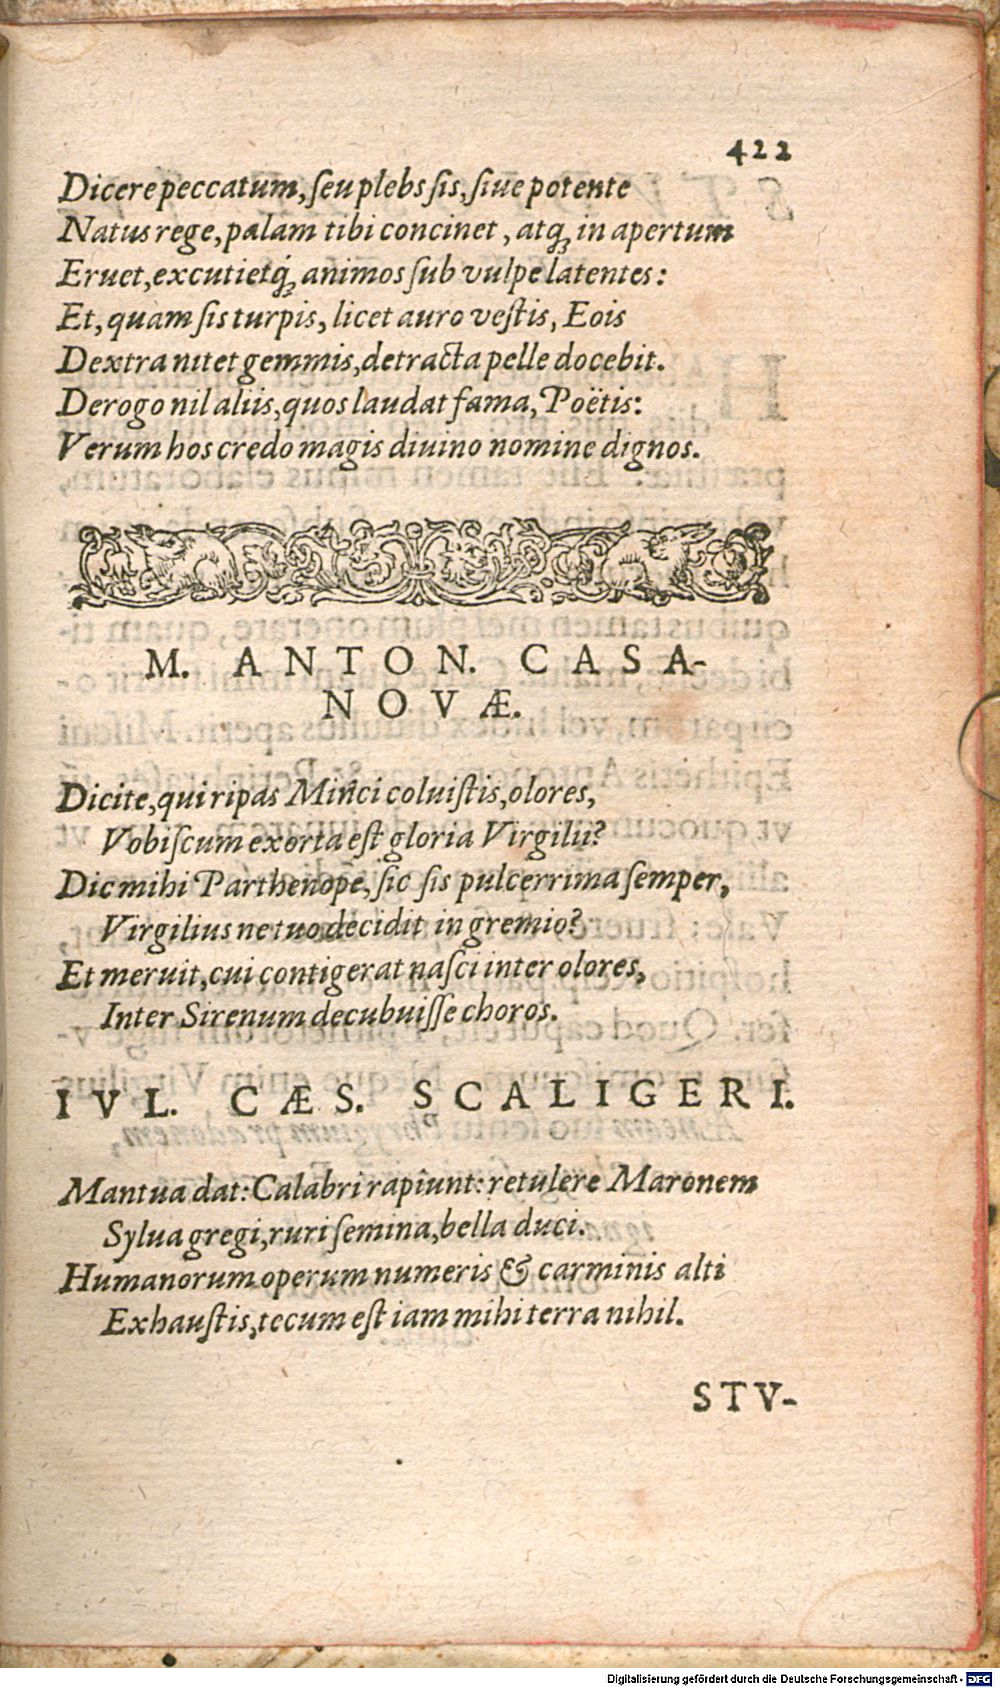 422
Dicere peccatum, ſeu plebs ſis, ſiue potente
Natus rege, palam tibi concinet, atq́; in apertum
Eruet, excutietq́; animos ſub vulpe latentes:
Et, quam ſis turpis, licet auro veſtis, Eois
Dextra nitet gemmis, detracta pelle docebit.
Derogo nil aliis, quos laudat fama, Poëtis:
Verum hos credo magis diuino nomine dignos.
M. ANTON. CASA-
NOVÆ.
Dicite, qui ripas Minci coluiſtis, olores,
Vobiſcum exorta eſt gloria Virgilii?
Dic mihi Parthenope, ſic ſis pulcerrima ſemper,
Virgilius ne tuo decidit in gremio?
Et meruit, cui contigerat naſci inter olores,
Inter Sirenum decubuiſſe choros.
IVL. CÆS. SCALIGERI.
Mantua dat: Calabri rapiunt: retulere Maronem
Sylua gregi, ruri ſemina, bella duci.
Humanorum operum numeris & carminis alti
Exhauſtis, tecum eſt iam mihi terra nihil.
STV-
Digitalisierung gefördert durch die Deutsche Forschungsgemeinschaft - DFG